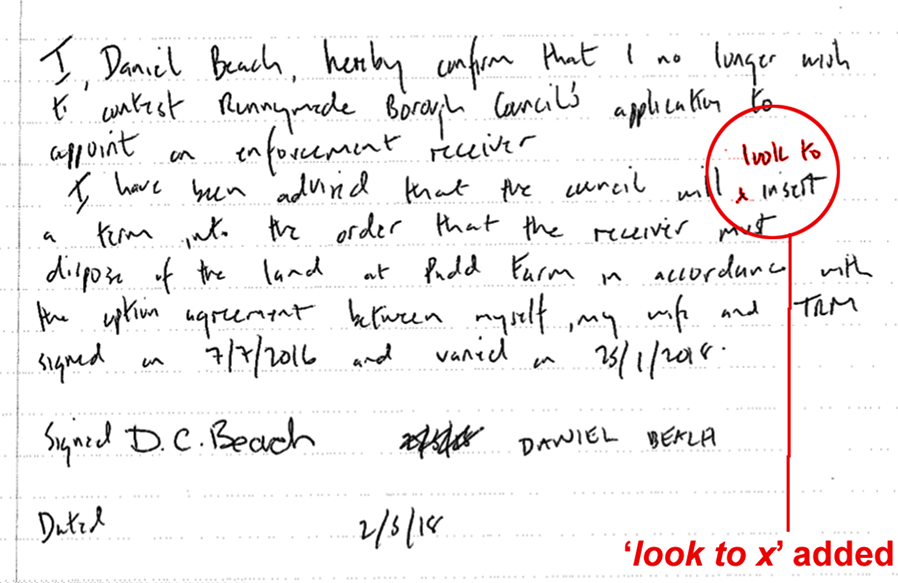 I, Daniel Beach, hereby confirm that I no longer wish
to contest Runnymede Borough Council's application to
appoint an enforcement receiver
look to
I have been advised that the council will x insert
a term into the order that the receiver must
dispose of the land at Padd Farm in accordance with
the option agreement between myself, my wife and TRM
signed on 7/7/2016 and varied on 25/1/2018.
Signed D.C.Beach DANIEL BEACH
Dated 2/3/18
'look to x' added